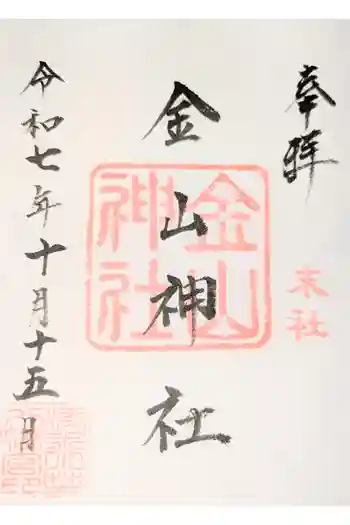 奉拝
末社
金山神社
金山神社
令和七年十月十五日